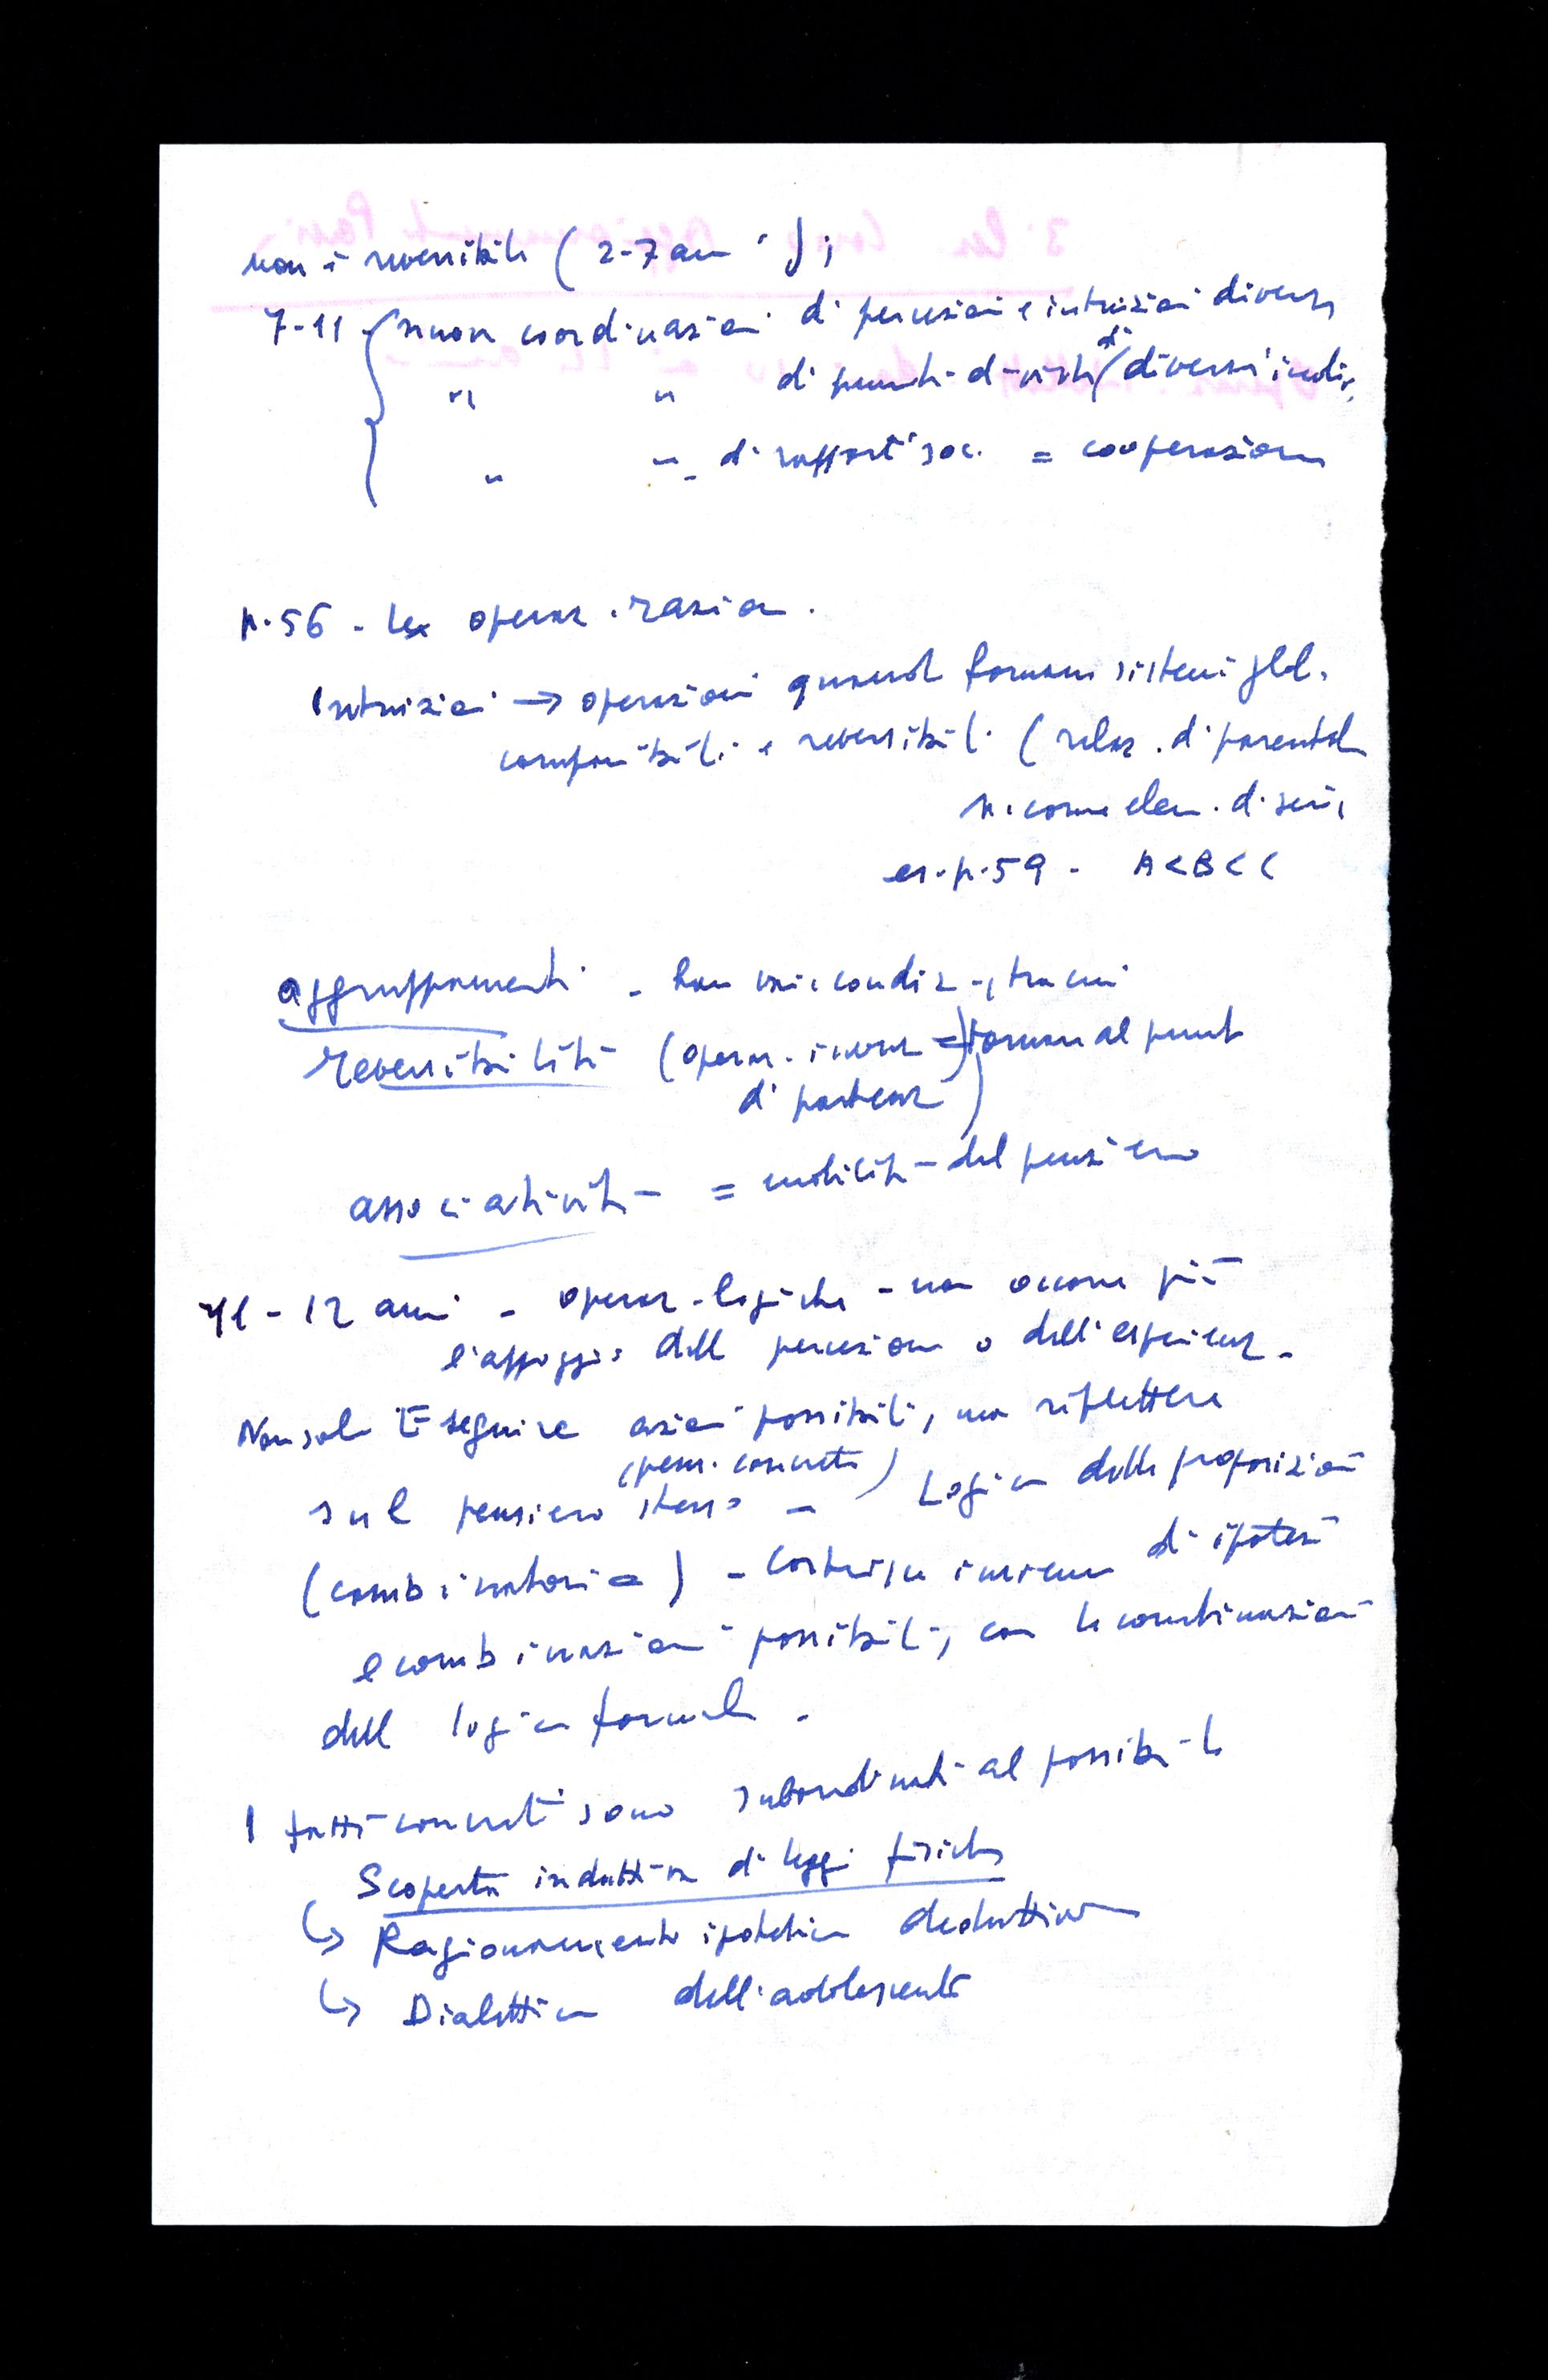 non è reversibile (2-7 anni);
7-11 nuove coordinazioni di percezioni e intuizioni diverse
" " di punti di vista di diversi indiv.
" " di rapporti soc. = cooperazione
p. 56 - Le operaz. razion.
Intuizioni → operazioni quando formano sistemi glob.
componibili e reversibili (relaz. di parentela
n. come elem. di serie
es. p. 59 - A<B<C
aggruppamenti - han varie condiz.
reversibilità (operaz. inversa = tornare al punto
di partenza)
associatività = mobilità del pensiero
11-12 anni - operaz. logiche - non occorre più
l'appoggio della percezione o dell'esperienza -
Non solo Eseguire azioni possibili, ma riflettere
(pens. concreto)
sul pensiero stesso - Logica delle proposizioni
(combinatoria) - costruisce insieme di ipotesi
e combinazioni possibili, con le combinazioni
della logica formale.
I fatti concreti sono subordinati al possibile
Scoperta induttiva di leggi fisiche
↳ Ragionamento ipotetico deduttivo
↳ Dialettica dell'adolescente